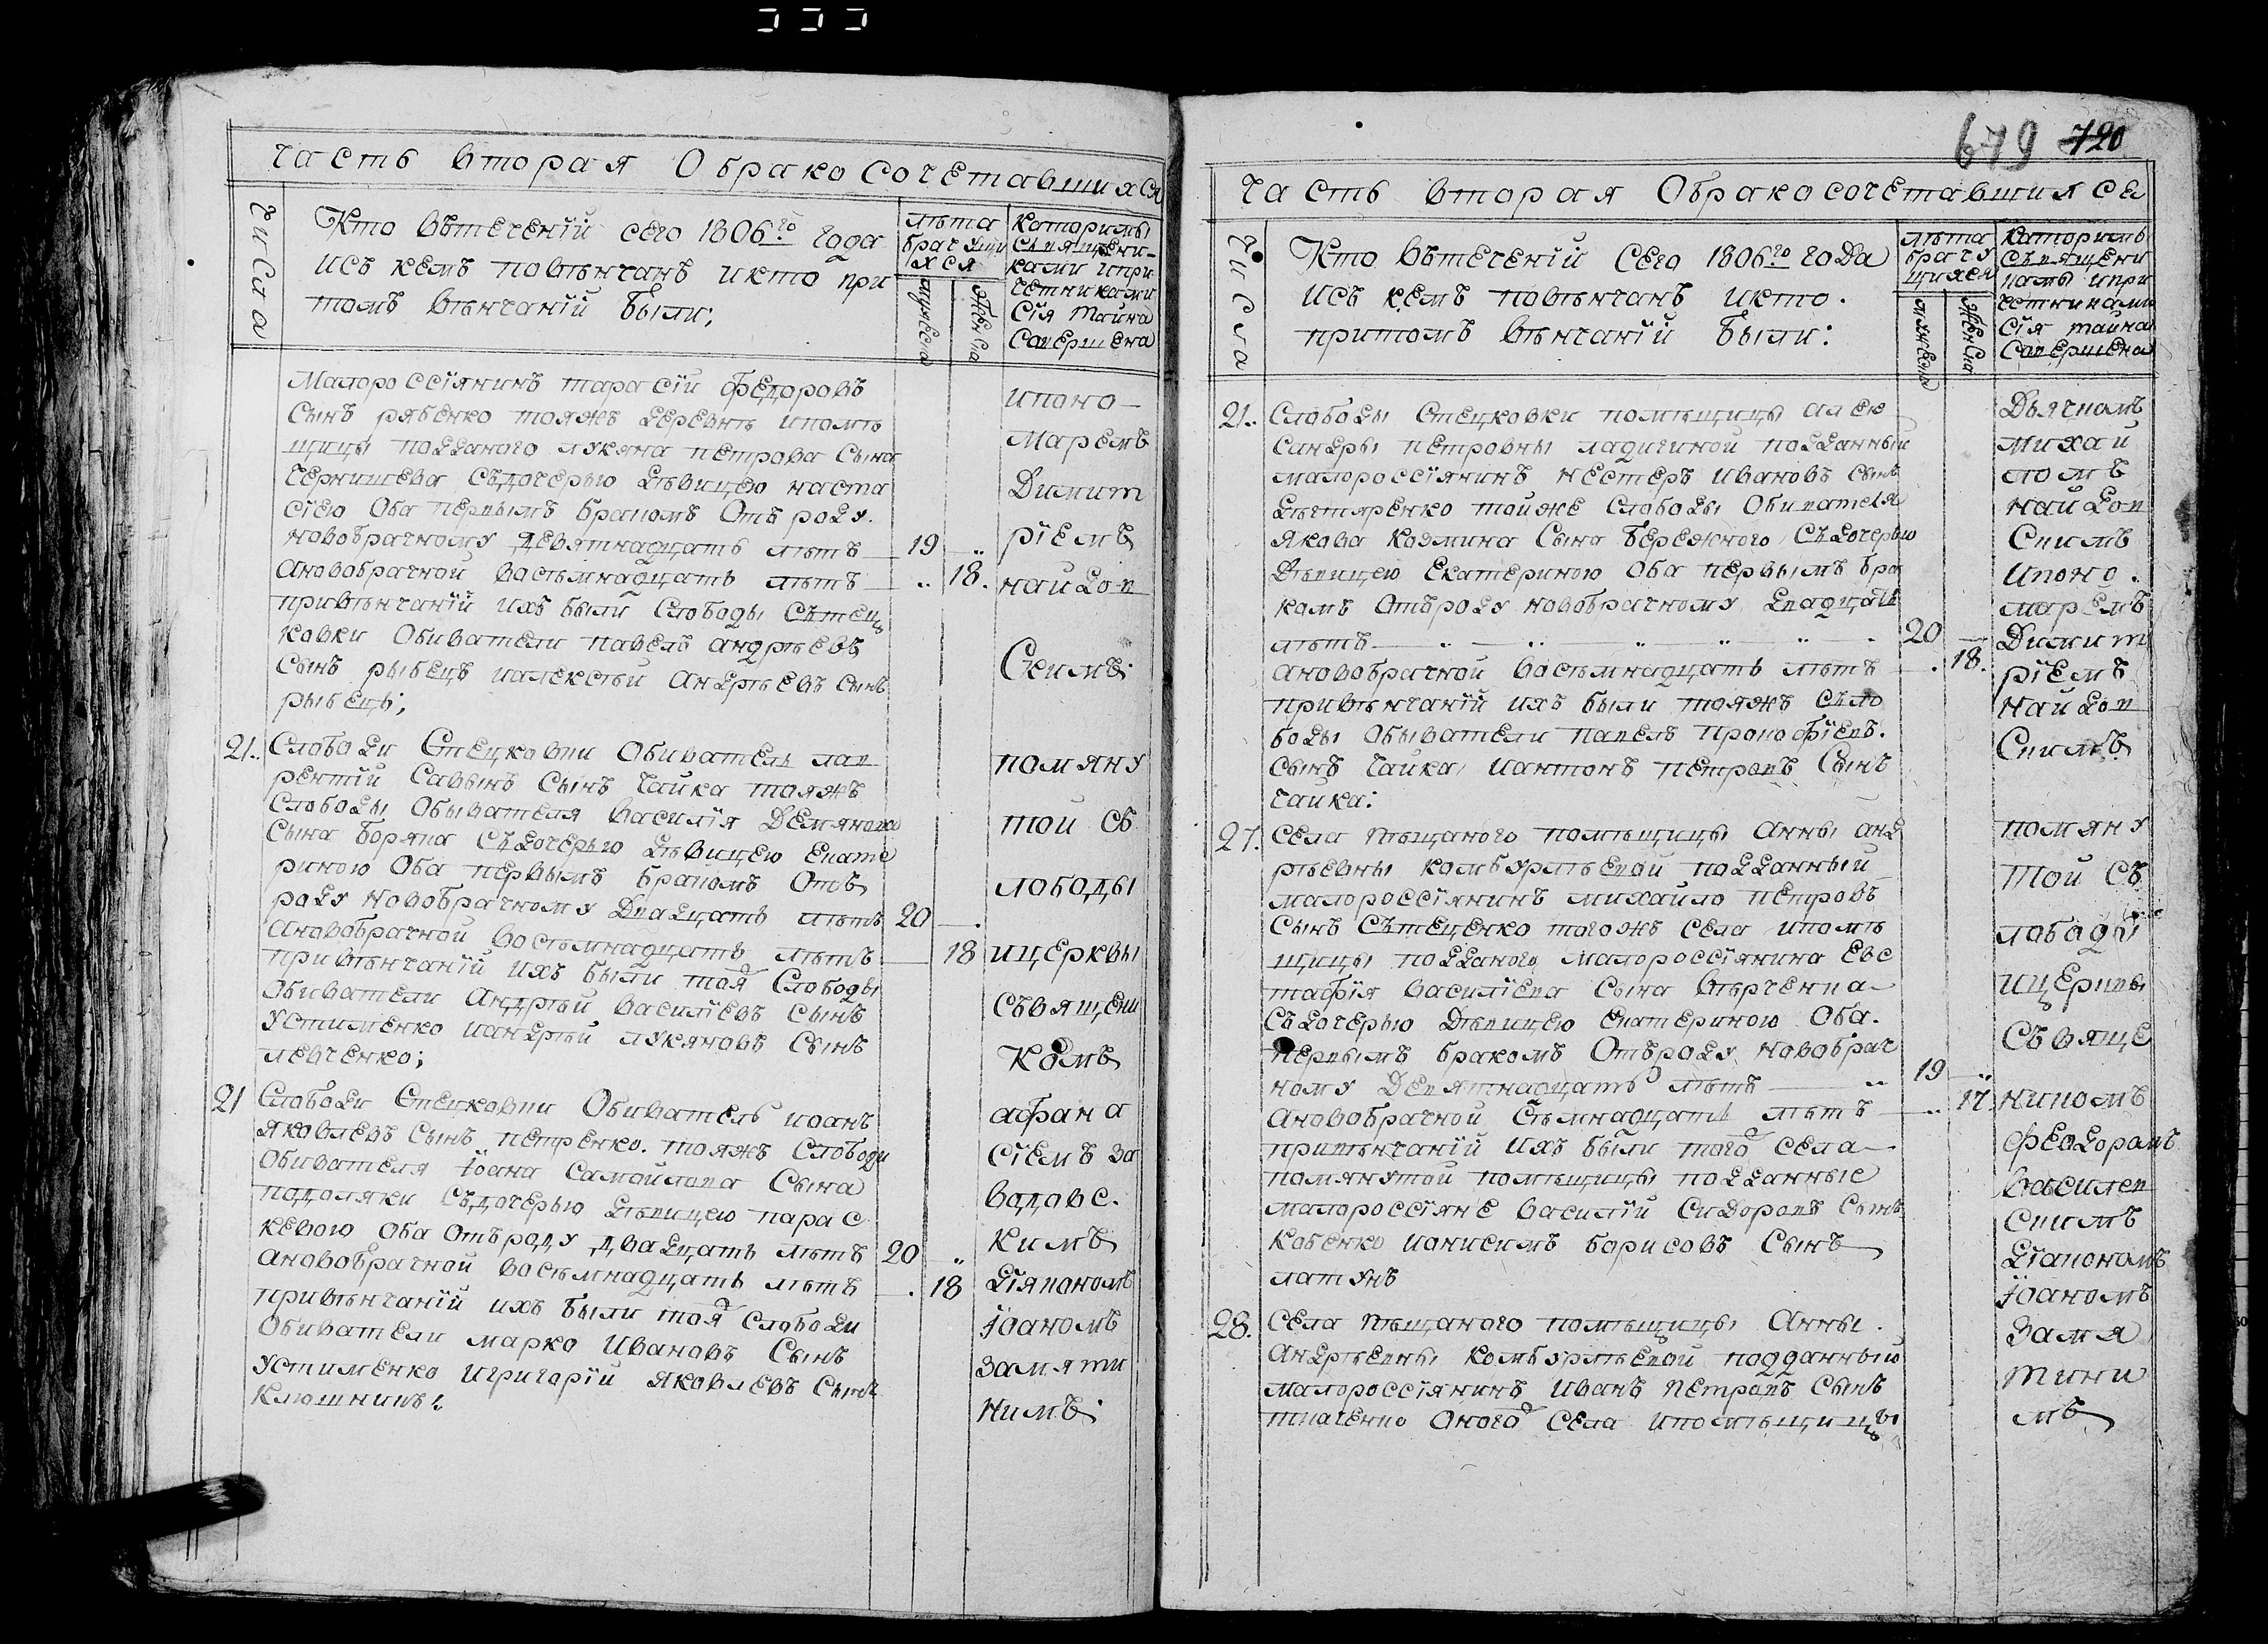 Часть вторая О бракосочетавшихся
Числа
Кто втечений сего 1806го года
исъ кемъ повенчанъ икто при
томъ венчаний были;
лета
брачущи
хся
мужеска
женска
каторимы
священи-
ками ипри
четниками
сїя тайна
савершена
Малороссїянинъ тарасїй федоровъ
сынъ рябенко тояжъ деревне ипоме
щицы подданого лукяна петрова сына
чернишева съдочерью девицею наста
сїею оба первымъ бракомъ отъ роду.
новобрачному девятнадцать летъ 19 ..
Ановобрачной восемнадцать летъ .. 18.
привенчанїй ихъ были слободы сътец
ковки обиватели павелъ андреевъ
сынъ рыбецъ иалексей андреевъ сынъ
рыбецъ;
ипоно-
маремъ
Димит
рїемъ
найдов
скимъ
21. Слободи Стецковки обиватель лав
рентїй савынъ сынъ чайка тояжъ
слободы обывателя василїя демянова
сына боряка съдочерью девицею екате
риною оба первымъ бракомъ отъ
роду новобрачному двадцать летъ 20 .
Ановобрачной восемнадцать летъ 18
привенчанїй ихъ были тоя слободы
обиватели андрей василїевъ сынъ
устименко иандрей лукяновъ сынъ
левченко;
помяну
той сь
лободы
ицерквы
съвящени
комъ
21 Слободи Стецковки обиватель иоанъ
яковлевъ сынъ петренко. тояжъ слободи
обивателя їоана самойлова сына
подоляки съдочерью девицею парас
кевою оба отъроду двадцать летъ 20 ..
ановобрачной восемнадцать летъ . 18
привенчанїй ихъ были тоя слободи
обиватели марко ивановъ сынъ
устименко игригорїй яковлевъ сынъ
клюшникъ:
афана
сїемъ за
водовс.
кимъ
дїяконом
їоаномъ
замяти
нимъ
679 720
Часть вторая О бракосочетавшихся
Числа
Кто втечений сего 1806го года
исъ кемъ повенчанъ икто.
притомъ венчаний были:
лета
брачу
щихся
мужеска
женска
каторимъ
съвящени
камы ипри
четникамы
сїя тайна
савершена
21. Слободы Стецковки помещицы алек
сандры петровны ладигиной подданный
малороссїянинъ нестеръ ивановъ сынъ
дегтяренко тойже слободы обивателя
якова козмина сына бережного съдочерью
девицею екатериною оба первымъ бра
комъ отъроду новобрачному двадцать
летъ 20
ановобрачной восемнадцать летъ . 18.
привенчанїй ихъ были тояжъ сьло
боды обыватели павелъ прокофїевъ.
сынъ чайка, иантонъ петровъ сынъ
чайка:
Дьячкомъ
михай
ломъ
найдов
скимъ
ипоно.
маремъ
Димит
рїемъ
найдов
скимъ
27. Села пещаного помещицы анны анд
реевны комбурлеевой подданный
малороссїянинъ михайло петровъ
сынъ сътеценко тогожъ села ипоме
щицы подданого малороссїянина евс
тафїя василїева сына верченка
съдочерью девицею екатериною оба.
первымъ бракомъ отъроду новобрач
ному девятнадцать летъ 19 ..
ановобрачной семнадцать летъ .. 17.
привенчанїй ихъ были того села
помянутой помещицы подданные
малороссїяне василїй сидоровъ сынъ
кабенко ионисимъ борисовъ сынъ
латунъ
помяну
той съ
лободы
ицерквы
съвяще
никомъ
феодоромъ
василев
скимъ
дїакономъ
їоаномъ
замя
тини
мъ
28. Села пещаного помещицы анны.
андреевны комбурлеевой подданный
малороссїянинъ иванъ петровъ сынъ
ткаченко оного села ипомещицы